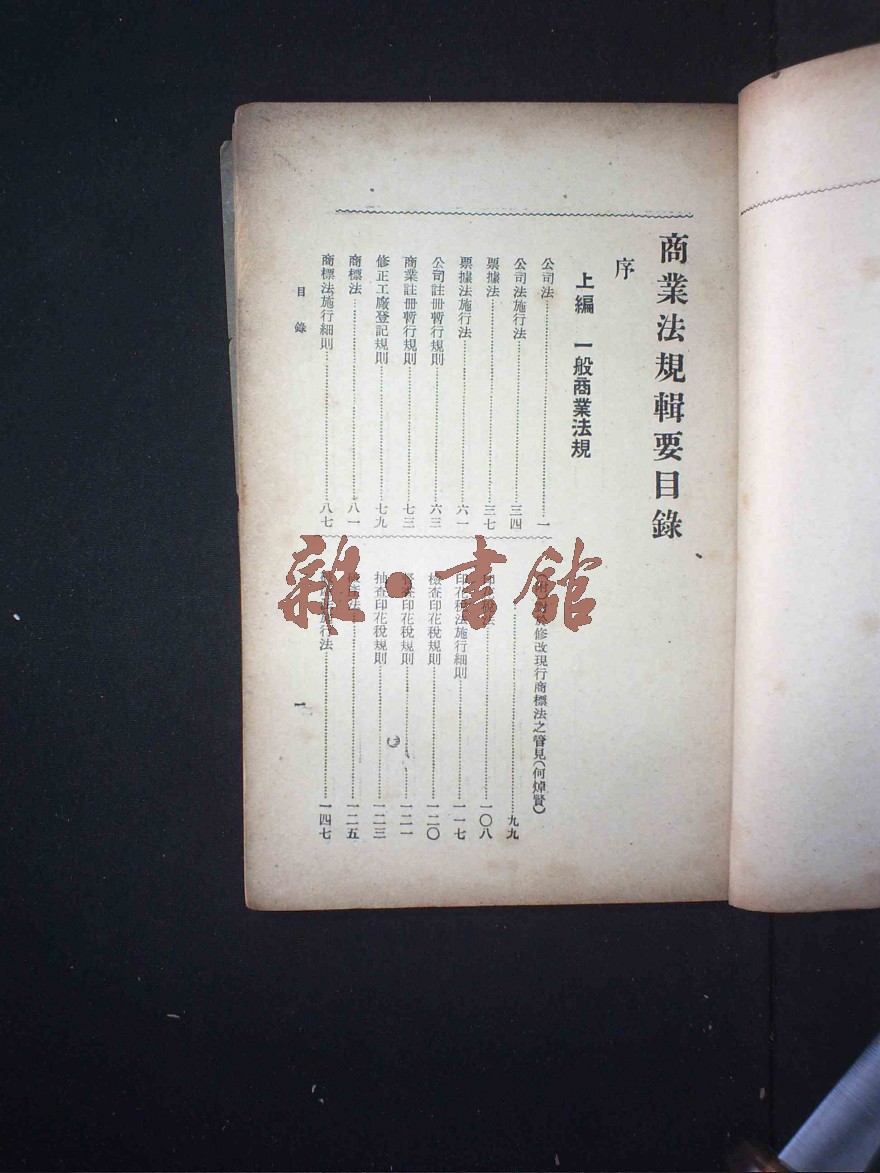 商業法規輯要目錄
序
上編　一般商業法規
公司法……一
公司法施行法……三四
票據法……三七
票據法施行法……六一
公司註冊暫行規則……六三
商業註冊暫行規則……七三
修正工廠登記規則……七九
商標法……八一
商標法施行細則……八七
修改現行商標法之管見(何焯賢)
……九九
法……一〇八
印花稅法施行細則……一一七
檢查印花稅規則……一二〇
查印花稅規則……一二一
抽查印花稅規則……一二三
法……一二五
施行法……一四七
目錄
一
雜·書館